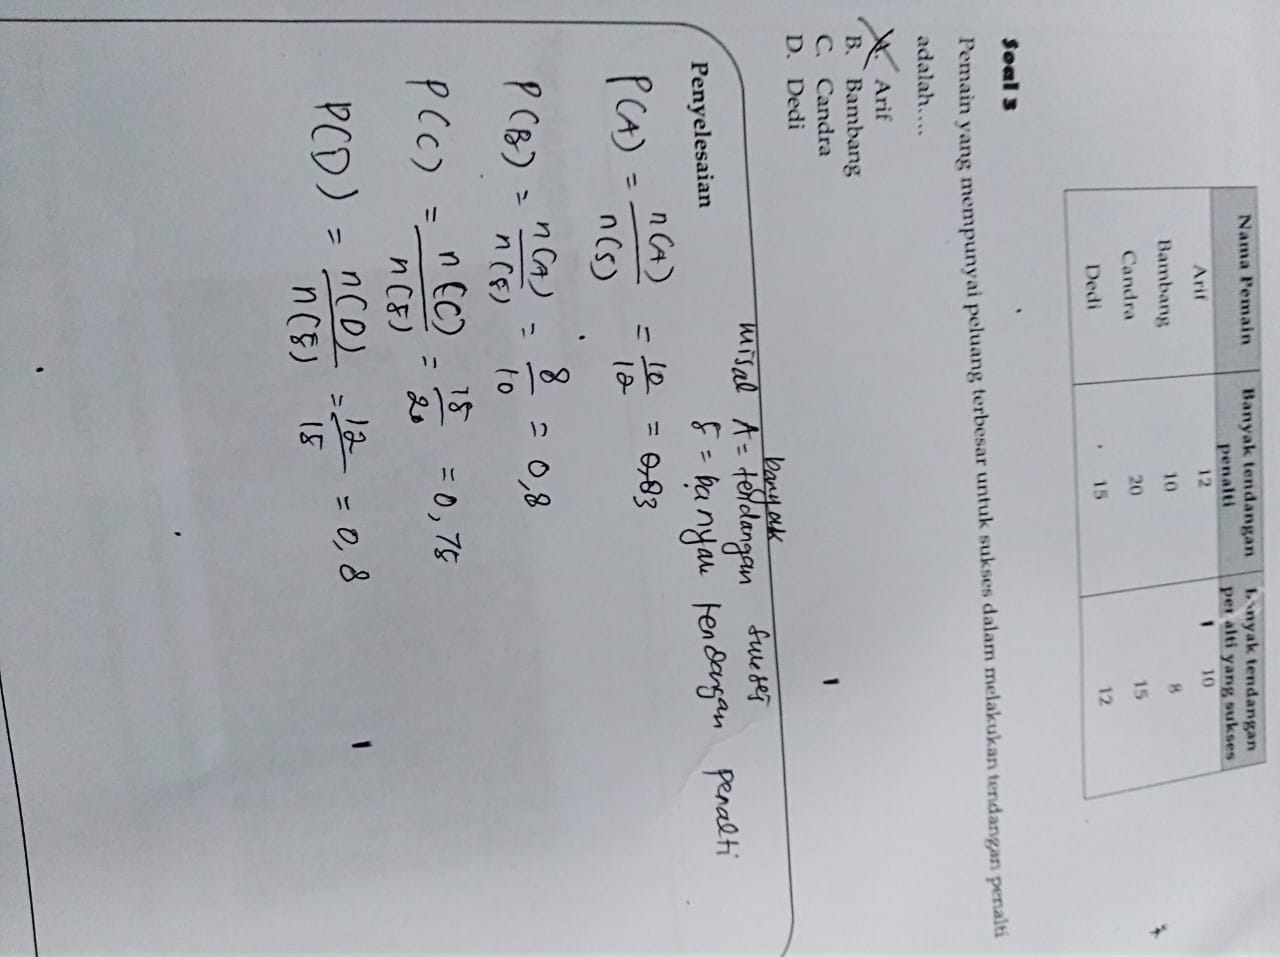 Nama Pemain Banyak tendangan penalti Banyak tendangan penalti yang sukses
Arif 12 10
Bambang 10 8
Candra 20 15
Dedi 15 12
Soal 3
Pemain yang mempunyai peluang terbesar untuk sukses dalam melakukan tendangan penalti
adalah....
A. Arif
B. Bambang
C. Candra
D. Dedi
banyak
misal A = tendangan sukses
S = banyak tendangan penalti
Penyelesaian
P(A) = n(A) / n(S) = 10 / 12 = 0,83
P(B) = n(A) / n(S) = 8 / 10 = 0,8
P(C) = n(C) / n(S) = 15 / 20 = 0,75
P(D) = n(D) / n(S) = 12 / 15 = 0,8